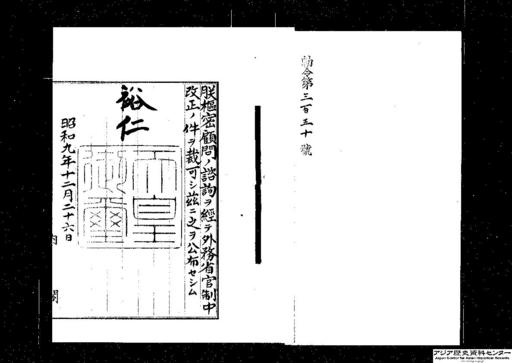 勅令第三百五十號
朕樞密顧問ノ諮詢ヲ經テ外務省官制中
改正ノ件ヲ裁可シ茲ニ之ヲ公布セシム
裕仁
天皇御璽
昭和九年十二月二十六日
内閣
アジア歴史資料センター
Japan Center for Asian Historical Records